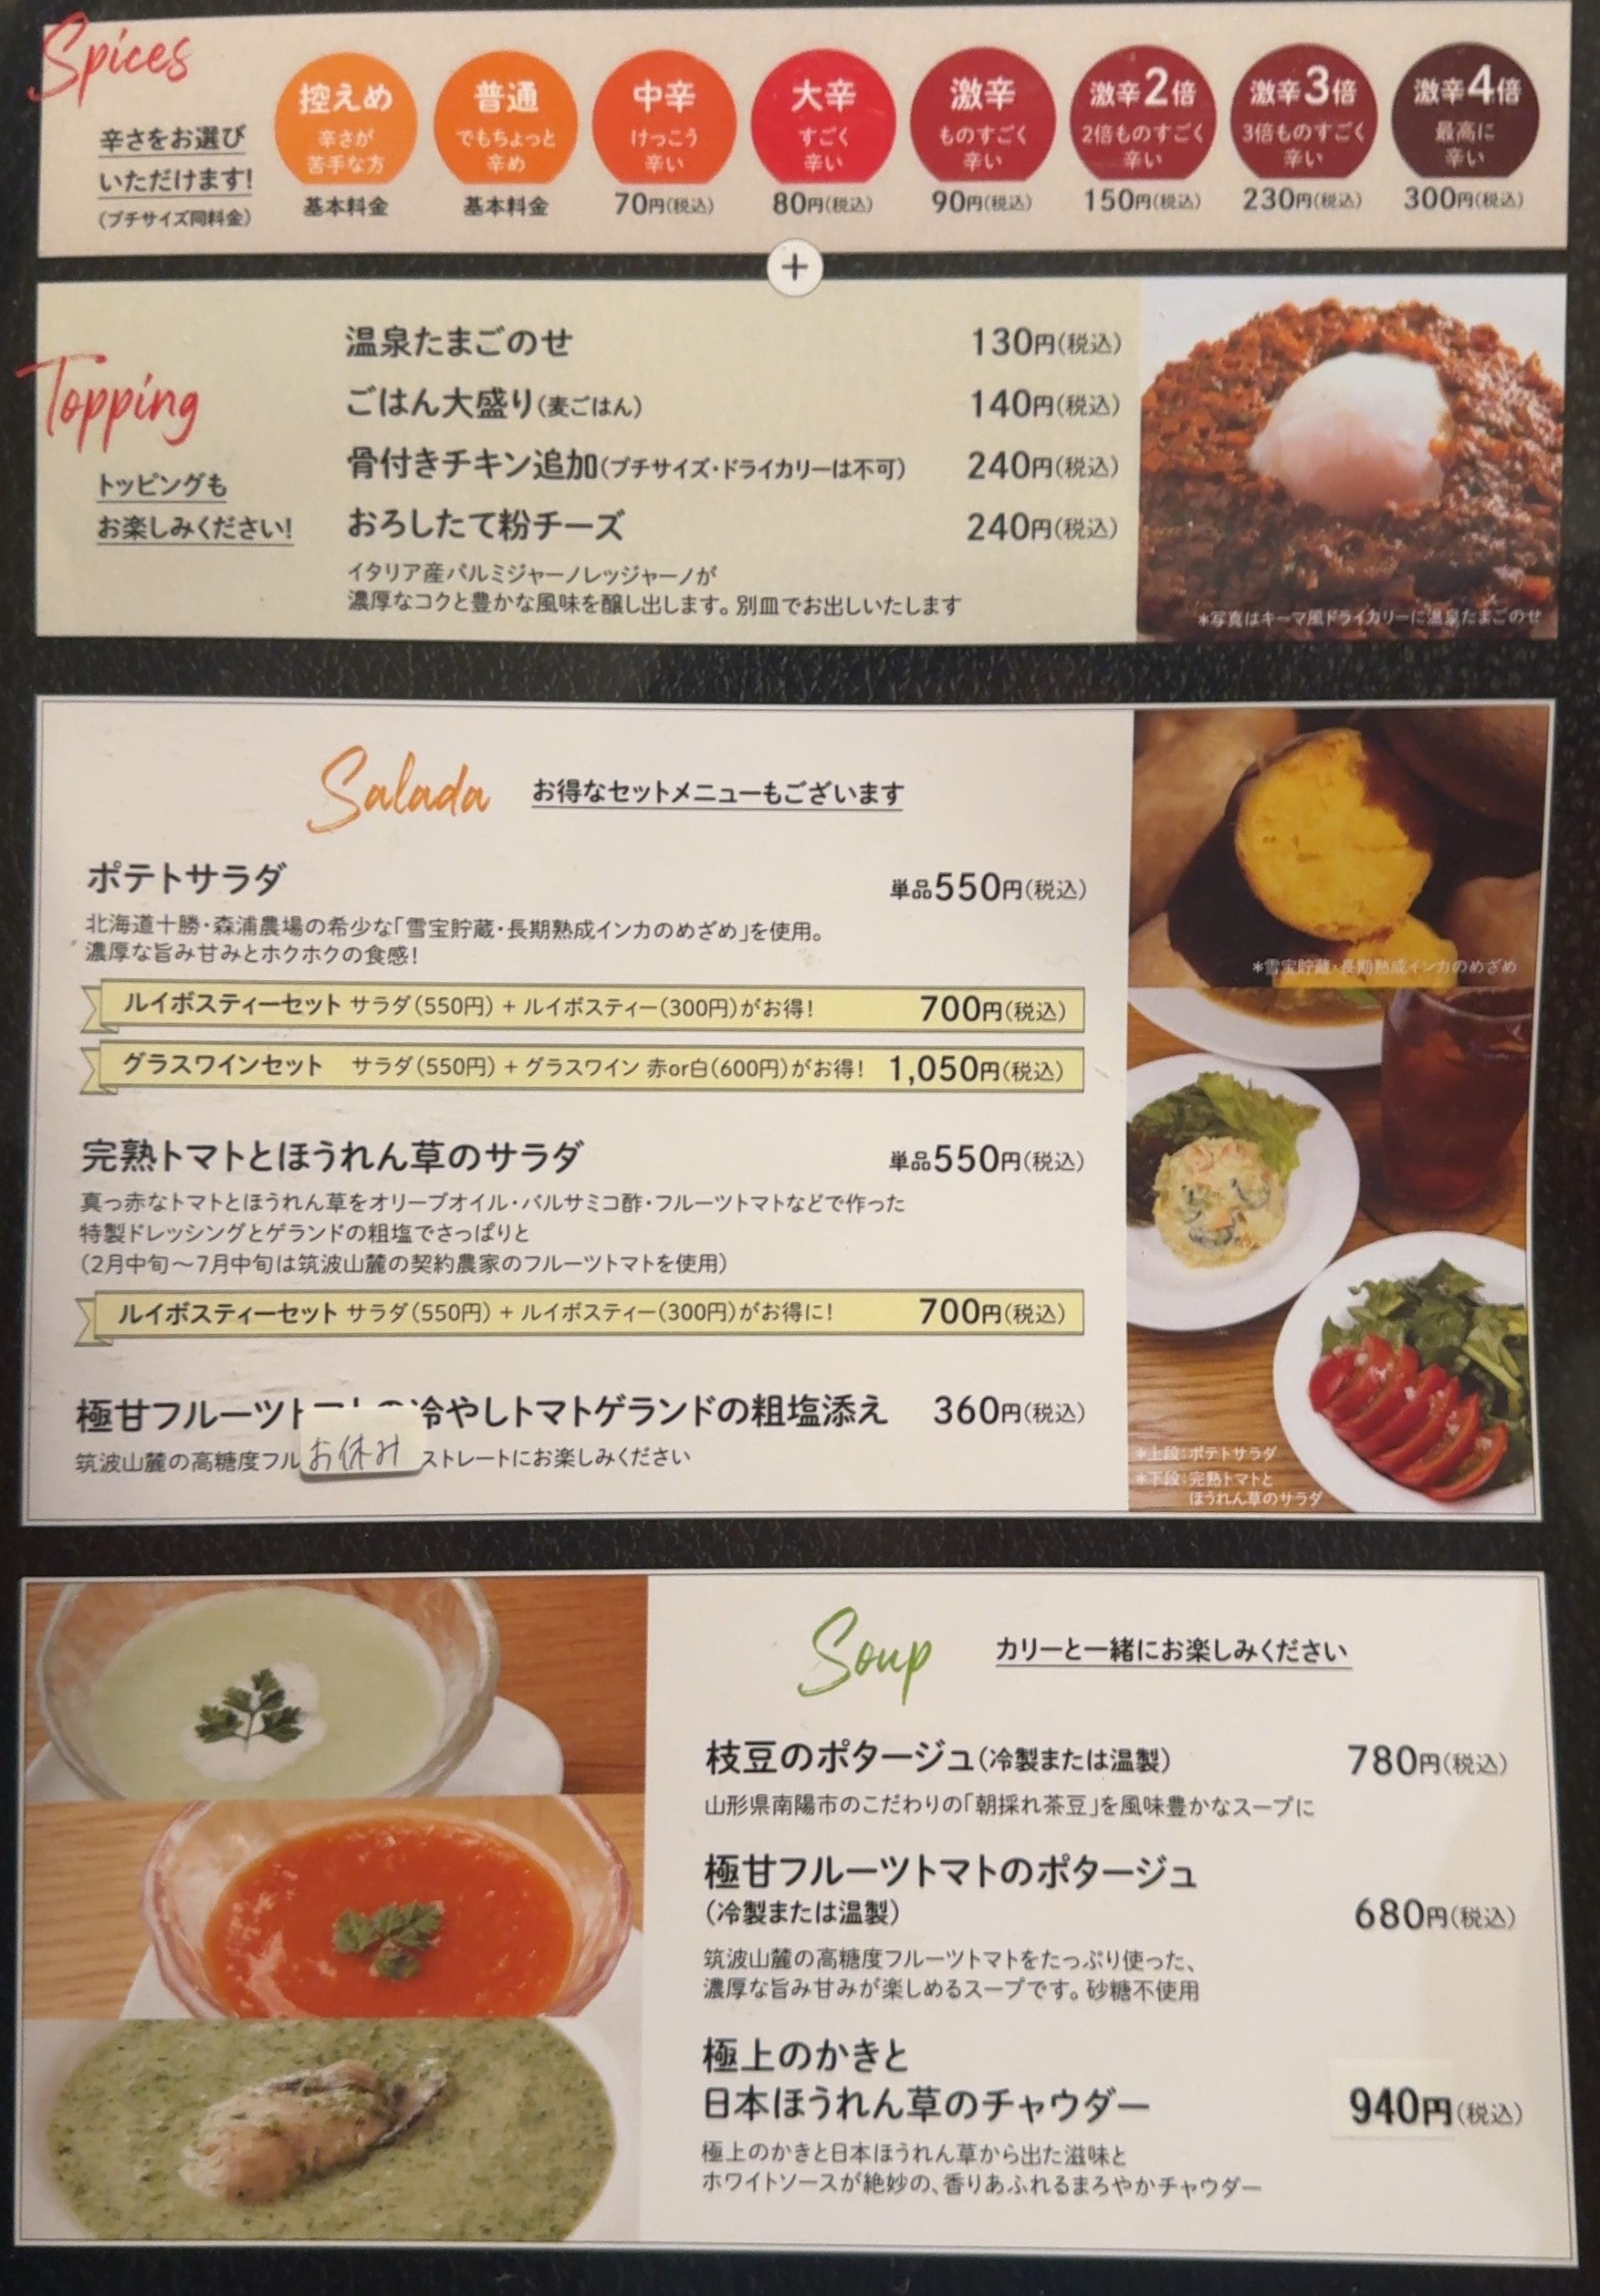 Spices
辛さをお選び
いただけます!
(プチサイズ同料金)
控えめ
辛さが
苦手な方
基本料金
普通
でもちょっと
辛め
基本料金
中辛
けっこう
辛い
70円(税込)
大辛
すごく
辛い
80円(税込)
激辛
ものすごく
辛い
90円(税込)
激辛2倍
2倍ものすごく
辛い
150円(税込)
激辛3倍
3倍ものすごく
辛い
230円(税込)
激辛4倍
最高に
辛い
300円(税込)
+
Topping
トッピングも
お楽しみください!
温泉たまごのせ 130円(税込)
ごはん大盛り(麦ごはん) 140円(税込)
骨付きチキン追加(プチサイズ・ドライカリーは不可) 240円(税込)
おろしたて粉チーズ 240円(税込)
イタリア産パルミジャーノレッジャーノが
濃厚なコクと豊かな風味を醸し出します。別皿でお出しいたします
*写真はキーマ風ドライカリーに温泉たまごのせ
Salada お得なセットメニューもございます
ポテトサラダ 単品550円(税込)
北海道十勝・森浦農場の希少な「雪室貯蔵・長期熟成インカのめざめ」を使用。
濃厚な旨み甘みとホクホクの食感!
ルイボスティーセット サラダ(550円) + ルイボスティー(300円)がお得! 700円(税込)
グラスワインセット サラダ(550円) + グラスワイン 赤or白(600円)がお得! 1,050円(税込)
*雪室貯蔵・長期熟成インカのめざめ
完熟トマトとほうれん草のサラダ 単品550円(税込)
真っ赤なトマトとほうれん草をオリーブオイル・バルサミコ酢・フルーツトマトなどで作った
特製ドレッシングとゲランドの粗塩でさっぱりと
(2月中旬~7月中旬は筑波山麓の契約農家のフルーツトマトを使用)
ルイボスティーセット サラダ(550円) + ルイボスティー(300円)がお得に! 700円(税込)
極甘フルーツトマトの冷やしトマトゲランドの粗塩添え 360円(税込)
筑波山麓の高糖度フル ストレートにお楽しみください
お休み
*上段:ポテトサラダ
*下段:完熟トマトと
ほうれん草のサラダ
Soup カリーと一緒にお楽しみください
枝豆のポタージュ(冷製または温製) 780円(税込)
山形県南陽市のこだわりの「朝採れ茶豆」を風味豊かなスープに
極甘フルーツトマトのポタージュ
(冷製または温製) 680円(税込)
筑波山麓の高糖度フルーツトマトをたっぷり使った、
濃厚な旨み甘みが楽しめるスープです。砂糖不使用
極上のかきと
日本ほうれん草のチャウダー 940円(税込)
極上のかきと日本ほうれん草から出た滋味と
ホワイトソースが絶妙の、香りあふれるまろやかチャウダー